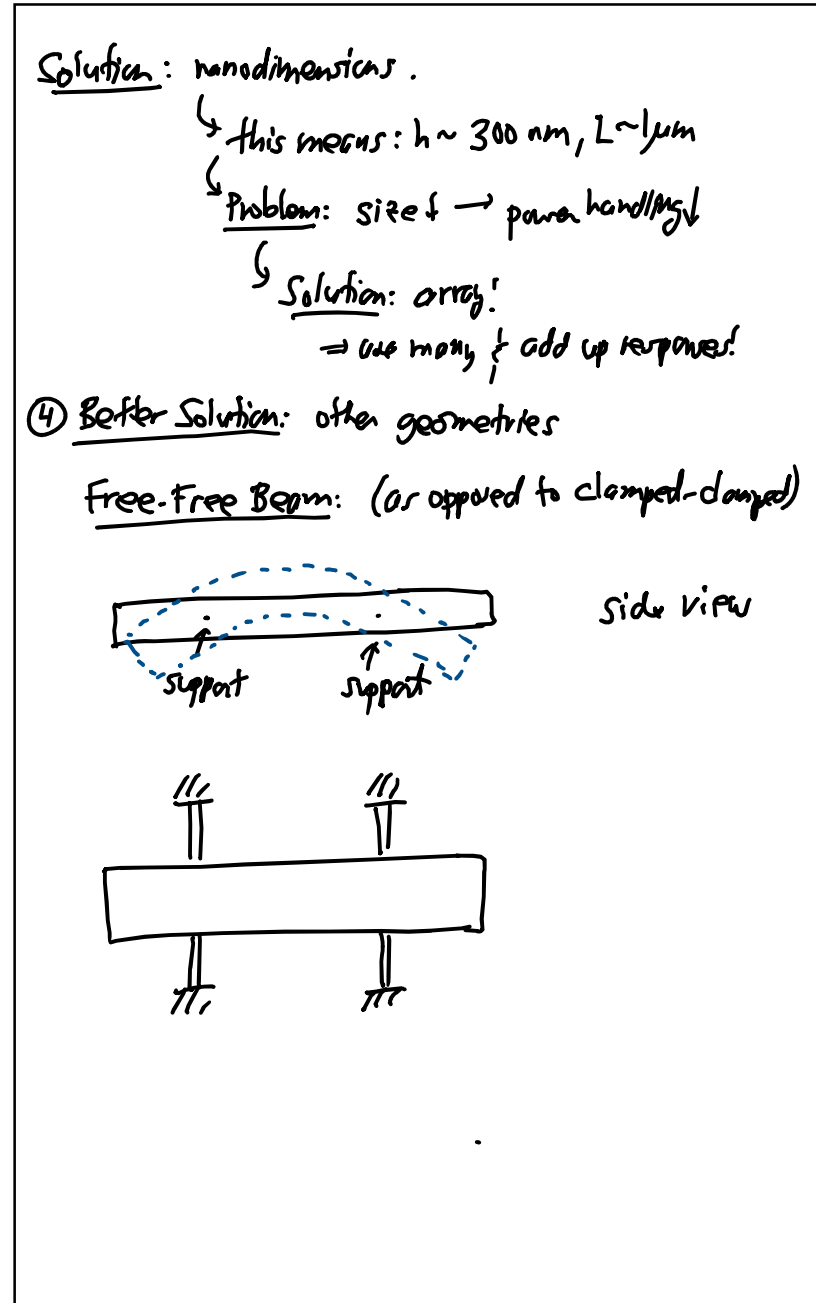 Solution: nanodimensions.
↳ this means: h ~ 300 nm, L ~ 1μm
↳ Problem: size ↓ → power handling ↓
↳ Solution: array!
⇒ use many & add up responses!
④ Better Solution: other geometries
Free-Free Beam: (as opposed to clamped-clamped)
side view
support support